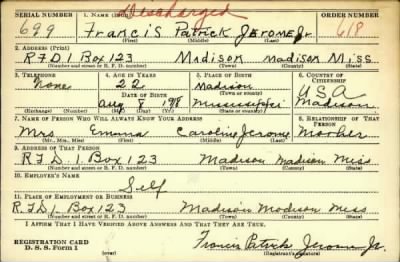 Discharged
SERIAL NUMBER 1. NAME (Print) ORDER NUMBER
699 Francis Patrick Jerome Jr. 618
(First) (Middle) (Last)
2. ADDRESS (Print)
RFD 1 Box 123 Madison Madison Miss
(Number and street or R. F. D. number) (Town) (County) (State)
3. TELEPHONE 4. AGE IN YEARS 5. PLACE OF BIRTH 6. COUNTRY OF CITIZENSHIP
None 22 Madison
(Town or county)
DATE OF BIRTH USA
Aug 8 1918 Mississippi Madison
(Exchange) (Number) (Mo.) (Day) (Yr.) (State or country)
7. NAME OF PERSON WHO WILL ALWAYS KNOW YOUR ADDRESS 8. RELATIONSHIP OF THAT PERSON
Mrs Emma Caroline Jerome Mother
(Mr., Mrs., Miss) (First) (Middle) (Last)
9. ADDRESS OF THAT PERSON
RFD. 1. Box 123 Madison Madison Miss
(Number and street or R. F. D. number) (Town) (County) (State)
10. EMPLOYER'S NAME
Self
11. PLACE OF EMPLOYMENT OR BUSINESS
R.F.D 1. Box 123 Madison Madison Miss
(Number and street or R. F. D. number) (Town) (County) (State)
I AFFIRM THAT I HAVE VERIFIED ABOVE ANSWERS AND THAT THEY ARE TRUE.
REGISTRATION CARD
D. S. S. Form 1 Francis Patrick Jerome Jr.
(Registrant's signature)